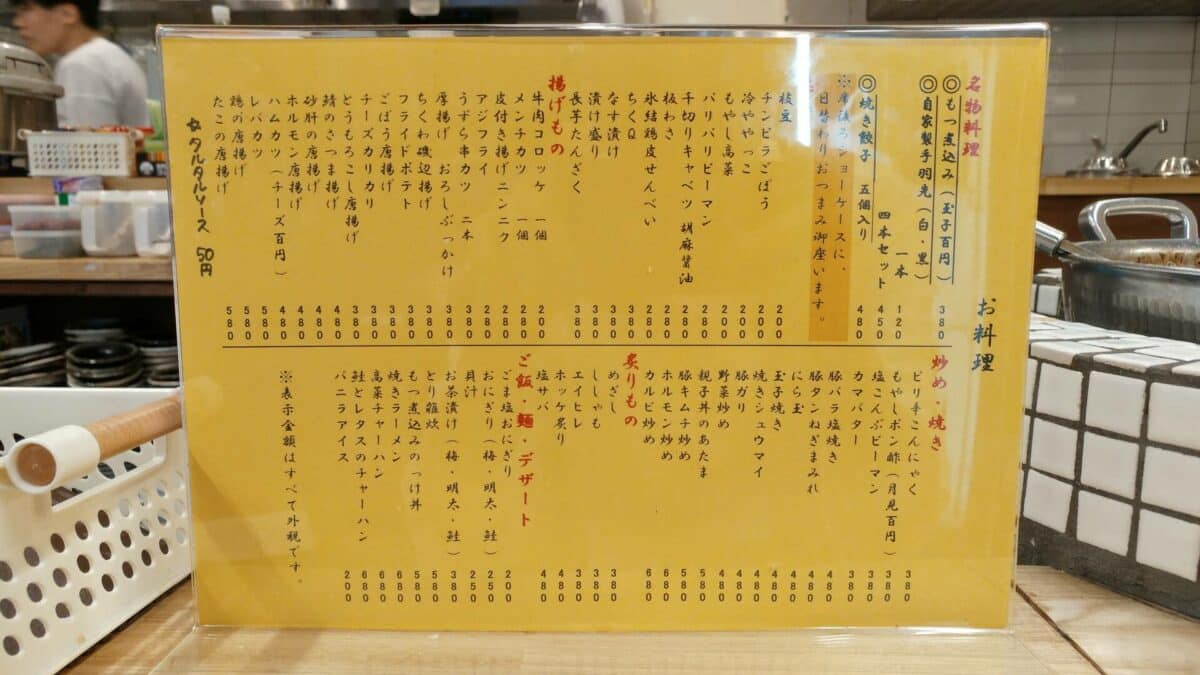 お料理
名物料理
◎もつ煮込み（玉子百円） 380
◎自家製手羽先（白・黒）
一本 120
四本セット 450
◎焼き餃子 五個入り 480
日替わりおつまみ御座います。
枝豆 200
チンピラごぼう 200
冷ややっこ 200
もやし高菜 200
パリパリピーマン 200
千切りキャベツ 胡麻醤油 280
板わさ 280
氷結鶏皮せんべい 280
ちくQ 380
なす漬け 380
漬け盛り 380
長芋たんざく 380
揚げもの
牛肉コロッケ 一個 200
メンチカツ 一個 200
皮付き揚げニンニク 280
アジフライ 280
うずら串カツ 二本 280
厚揚げ おろしぶっかけ 380
ちくわ磯辺揚げ 380
フライドポテト 380
ごぼう唐揚げ 380
チーズカリカリ 380
とうもろこし唐揚げ 380
鯖のさつま揚げ 480
砂肝の唐揚げ 480
ホルモン唐揚げ 480
ハムカツ（チーズ百円） 480
レバカツ 580
鶏の唐揚げ 580
たこの唐揚げ 580
タルタルソース 50円
炒め・焼き
ピリ辛こんにゃく 380
もやしポン酢（月見百円） 380
塩こんぶピーマン 380
カマバター 380
豚バラ塩焼き 480
豚タンねぎまみれ 480
にら玉 480
玉子焼き 480
焼きシュウマイ 480
豚ガリ 480
野菜炒め 480
親子丼のあたま 580
豚キムチ炒め 580
ホルモン炒め 680
カルビ炒め 680
炙りもの
めざし 380
ししゃも 380
エイヒレ 380
ホッケ炙り 480
塩サバ 480
ご飯・麺・デザート
ごま塩おにぎり 200
おにぎり（梅・明太・鮭） 250
貝汁 250
お茶漬け（梅・明太・鮭） 380
とり雑炊 580
もつ煮込みのっけ丼 580
焼きラーメン 680
高菜チャーハン 680
鮭とレタスのチャーハン 680
バニラアイス 200
※表示金額はすべて外税です。